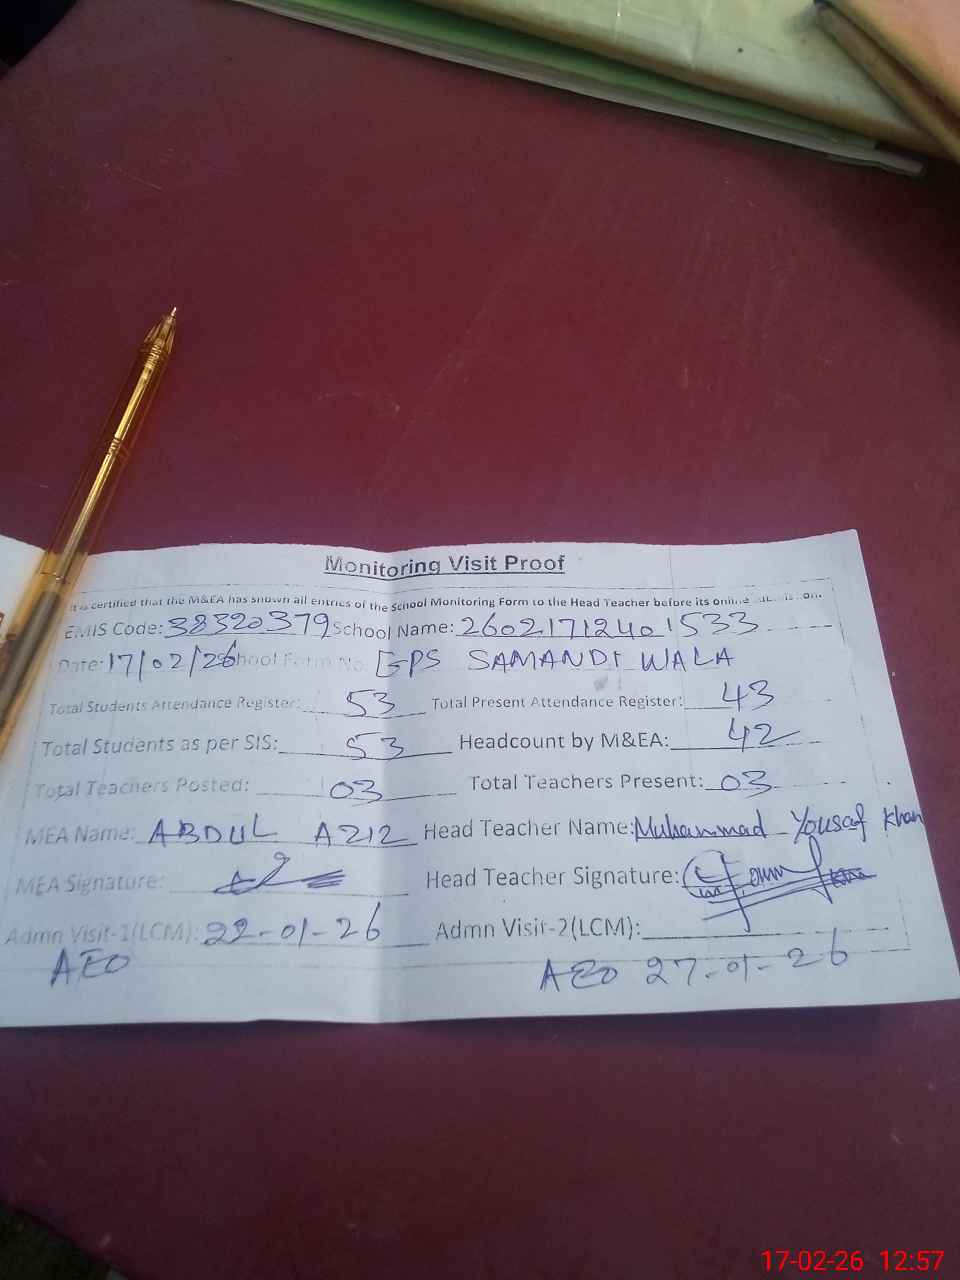 Monitoring Visit Proof
It is certified that the M&EA has shown all entries of the School Monitoring Form to the Head Teacher before its online
EMIS Code: 38320379 School Name: 26021712401533
Date: 17/02/26 School Form No. GPS SAMANDI WALA
Total Students Attendance Register: 53 Total Present Attendance Register: 43
Total Students as per SIS: 53 Headcount by M&EA: 42
Total Teachers Posted: 03 Total Teachers Present: 03
MEA Name: ABDUL AZIZ Head Teacher Name: Muhammad Yousaf Khan
MEA Signature: Head Teacher Signature:
Admn Visit-1(LCM): 22-01-26 Admn Visit-2(LCM):
AEO AEO 27-01-26
17-02-26 12:57